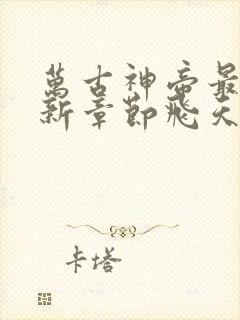 萬古神帝最
新章節飛天
卡塔